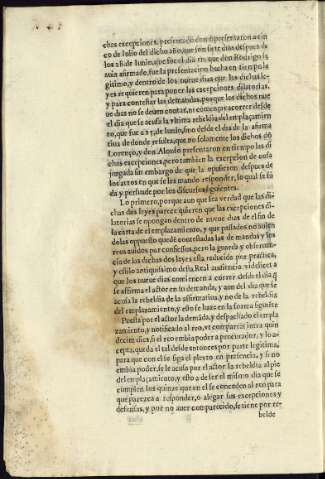 chas excepciones, presentado don
co de Iulio del dicho año, que son siete dias despues de
los 28. de Iunio, que fue el dia en que don Rodrigo la
auia afirmado, fue la presentacion hecha en tiempo le
gitimo, y dentro de los nueue dias que las dichas le-
yes requieren para poner las excepciones dilatorias,
y para contestar las demandas, porque los dichos nue
ue dias no se deuen contar, ni comiençan a correr desde
el dia que se acusa la vltima rebeldia del emplaçamien
to, que fue a 25. de Iunio, sino desde el dia de la afirma
tiua de donde resulta, que no solamente los dichos don
Lorenço, y don Alonso presentaron en tiempo las di
chas excepciones, pero tambien la excepcion de cosa
juzgada sin embargo de que la opusieron despues de
los autos en que se les mando responder, lo qual se fũ
da, y persuade por los discursos siguientes.
Lo primero, porque aunque sea verdad que las di-
chas dos leyes parece quieren que las excepciones di
latorias se opongan dentro de nueue dias del fin de
la carta de emplazamiento, y que passados no
das las oppuesto quedē contestadas las demandas y los
reos auidos por confiessos, pero la guarda y obseruan-
cia de los dichas dos leyes está reducida por practica,
y estilo antiquissimo desta Real audiencia vt dicet a
que los nueue dias comiencen a correr desde el dia q̃
se affirma el actor en su demanda, y aun del dia que se
acusa la rebeldia de la affirmatiua, y no de la rebeldia
del emplazamiento, y esto se haze en la forma siguiēte
Puesta por el actor la demāda, y despachado el empla
zamiento, y notificado al reo, vt compareat intra quin
decim dies, si el reo embia poder a procurador, y lo a-
cepta, queda el tal desde entonces por parte legitima,
para que con el se siga el pleyto en presencia, y si no
embia poder, se le acusa por el actor la rebeldia al pie
del emplazamiento, y esto a de ser el mismo dia que se
cumplen los quinze que en el se conceden al reo para
que parezca a responder, o alegar sus excepciones y
defensas, y por no auer comparecido, se tiene por re-
belde